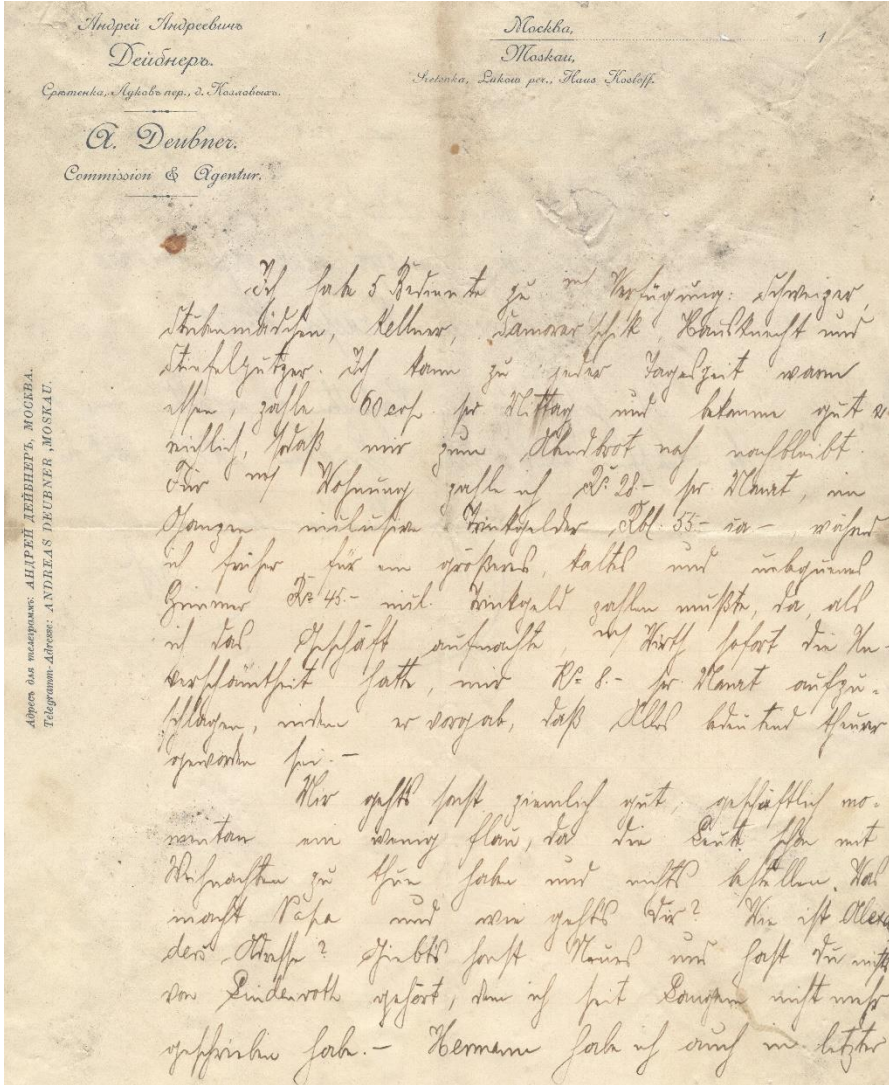 Андрей Андреевичъ
Дейбнеръ.
Срѣтенка, Луковъ пер., д. Козловыхъ.
A. Deubner.
Commission & Agentur.
Москва,
Moskau,
Sretenka, Lukow per., Haus Kosloff.
1
Адресъ для телеграммъ: АНДРЕЙ ДЕЙБНЕРЪ, МОСКВА.
Telegramm-Adresse: ANDREAS DEUBNER, MOSKAU.
Ich habe 5 Bediente zu Verfügung: Schweizer,
Stubenmädchen, Kellner, Samovarschik, Hausknecht und
Stiefelputzer. Ich kann zu jeder Tageszeit warm
essen, zahle 60 cop. pr Mittag und bekomme gut
reichlich, sodaß mir zum Abendbrot noch nachbleibt.
Für Wohnung zahle ich Rs 28.- pr. Monat, im
Ganzen inclusive Trinkgelder Rbl. 55- ca -, während
ich früher für ein größeres, kaltes und unbequemes
Zimmer Rs 45.- incl. Trinkgeld zahlen mußte, da, als
ich das Geschäft aufmachte, Wirth sofort die Un-
verschämtheit hatte, mir Rs 8.- pr. Monat aufzu-
schlagen, indem er vorgab, daß Alles bedeutend theurer
geworden sei. -
Mir gehts sonst ziemlich gut, geschäftlich mo-
mentan ein wenig flau, da die Leute schon mit
Weihnachten zu thun haben und nichts bestellen. Was
macht Papa und wie gehts Dir? Wie ist Alexan
ders Adresse? Giebts sonst Neues und hast Du nichts
von Lindenroth gehört, dem ich seit Langem nicht mehr
geschrieben habe. - Hermann habe ich auch in letzter